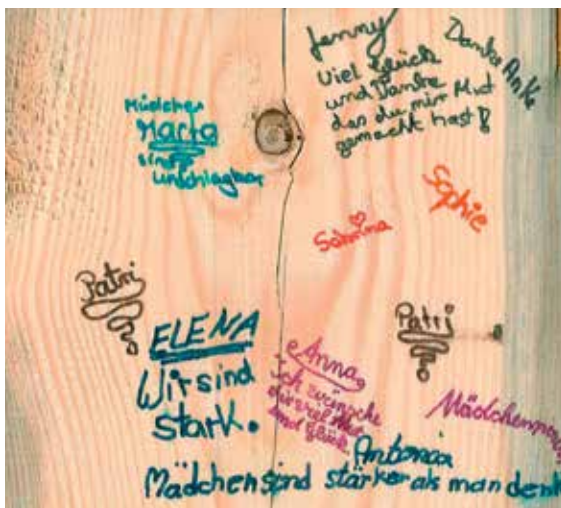 Jenny
Viel Glück
und Danke
das du mir Mut
gemacht hast
Danke Anke
Mädchen
Marta
sind
unschlagbar
Sophie
Sabrina
Patri
Patri
ELENA
Wir sind
stark.
Anna
Ich wünsche
dir viel
und Glück.
Mädchenpower
Antonia
Mädchen sind stärker als man denk